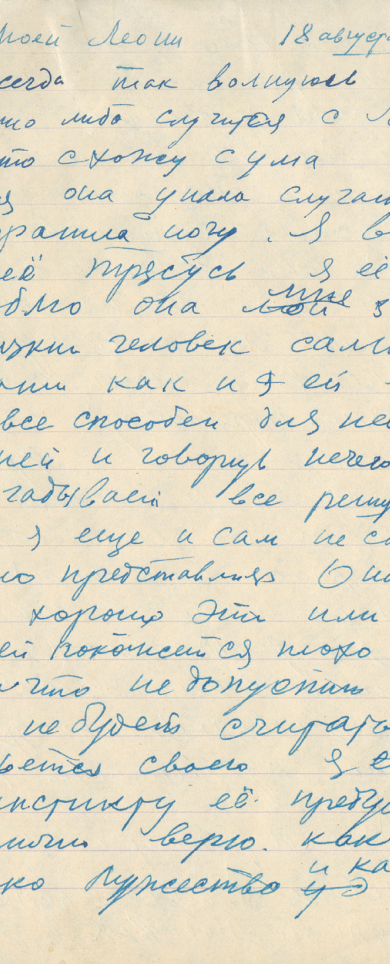 моей Леони 18 августа
сегда так волнуюсь
что либо случится с
что схожу с ума
я она упала случай
вратила ногу. Я в
её трясусь я её
блю она мне
изкий человек сам
как и я ей
все способен для не
ней и говорить нечего
гадывает все реш
я еще и сам не с
но представляя Он
хорошо эти или
ей покажется плохо
что не допустит
не будет считать
ется своего я
инстикту её преду
верю. как
ко мужество и ка